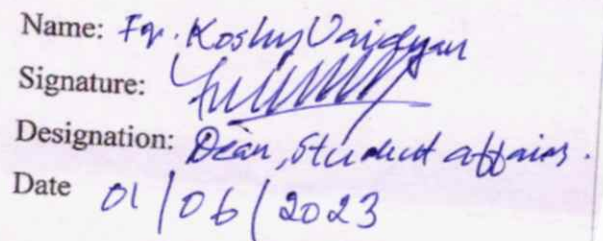 Name: Fr. Koshy Vaidyan
Signature:
Designation: Dean, Student affairs.
Date 01/06/2023